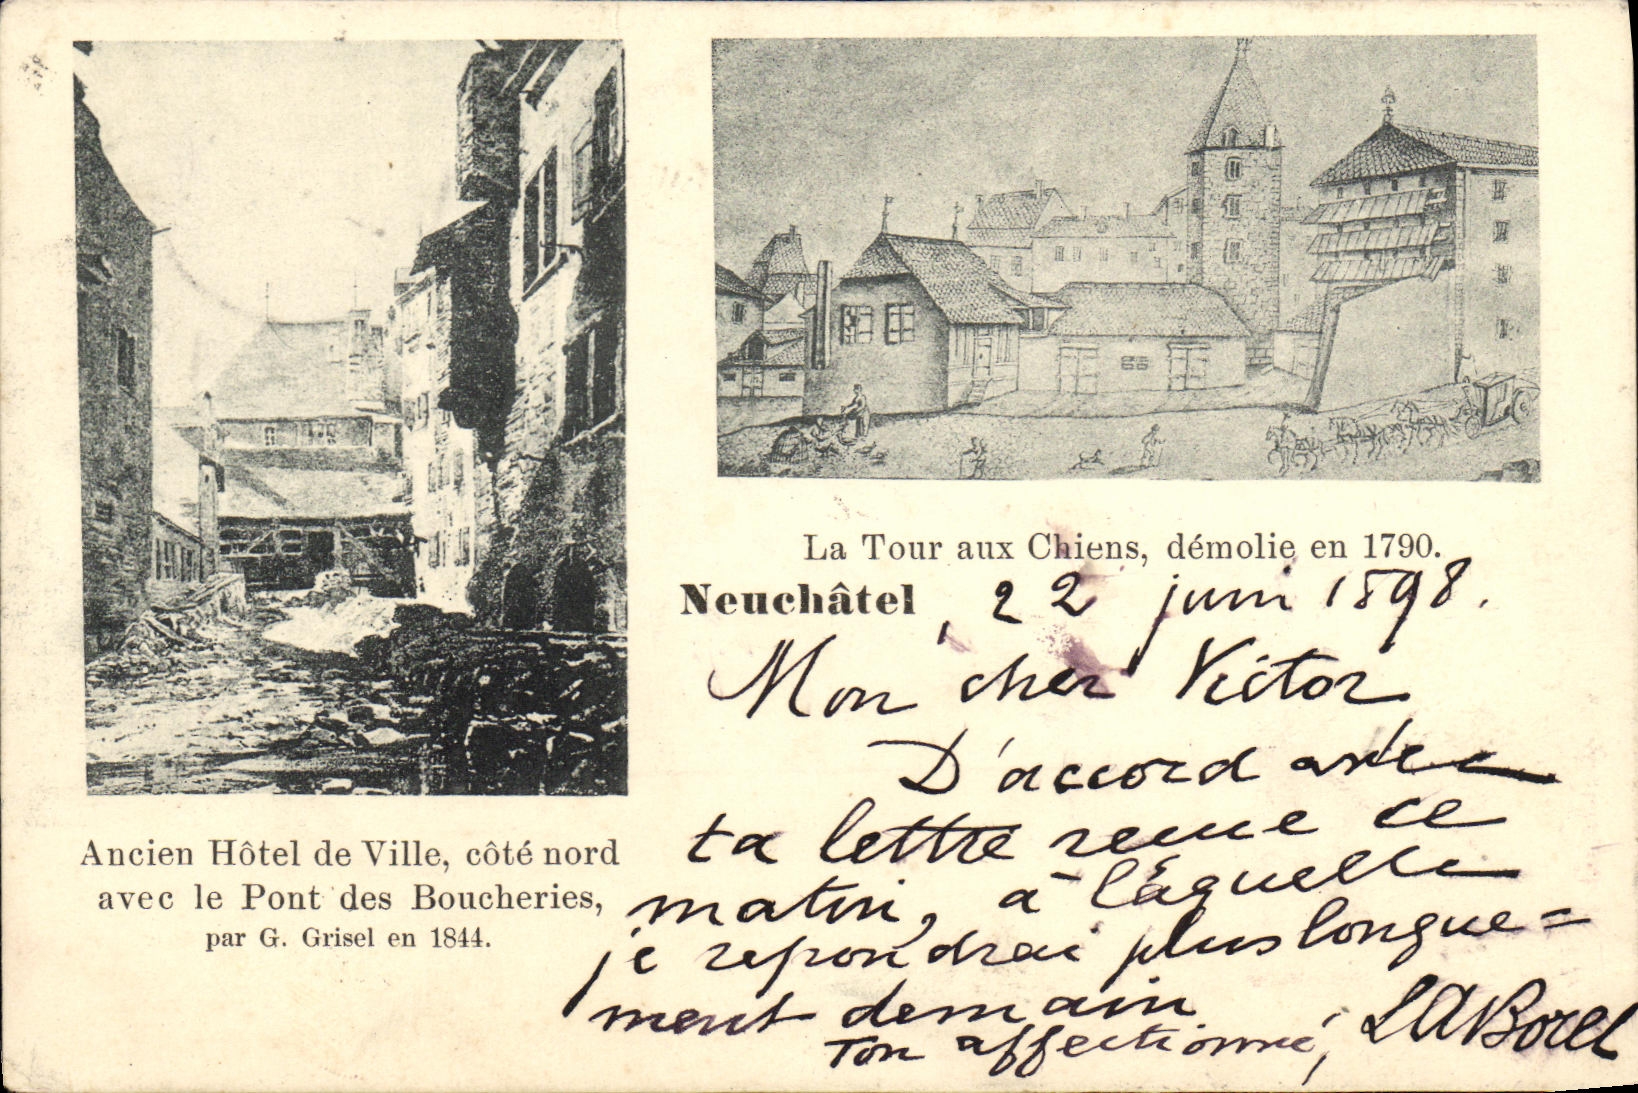 La Tour aux Chiens, démolie en 1790.
Neuchâtel, 22 juin 1898.
Mon cher Victor
D'accord avec
ta lettre reçue ce
matin, à laquelle
je repondrai plus longue=
ment demain
Ton affectionné, LABorel
Ancien Hôtel de Ville, côté nord
avec le Pont des Boucheries,
par G. Grisel en 1844.